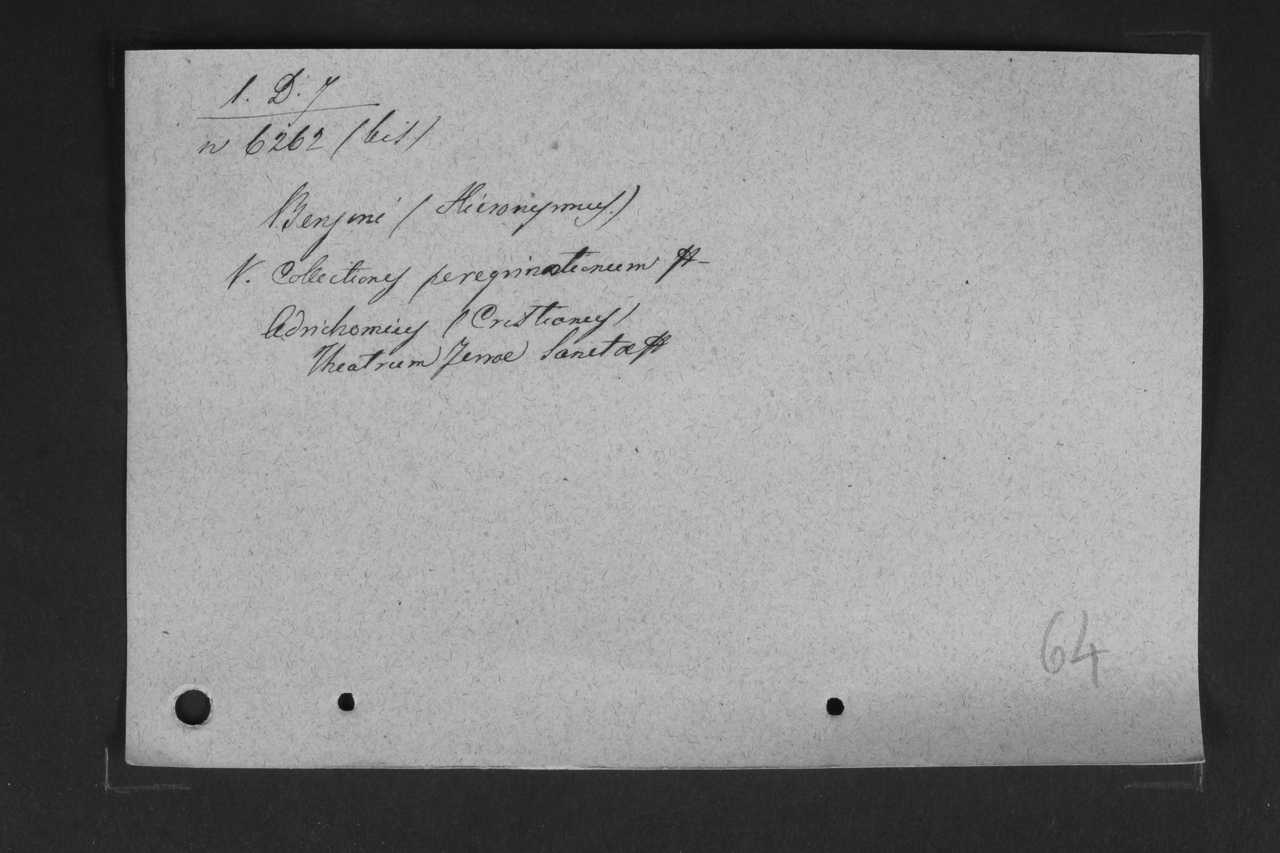 1. D. 7
n 6262 (bis)
Benzoni (Hieronymus.)
V. Collectiones peregrinationum
Adrichomius (Cristianus)
Theatrum Terrae Sanctae
64